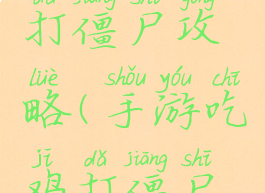 dǎ jiāng shī gōng
打僵尸攻
lüè shǒu yóu chī
略(手游吃
jī dǎ jiāng shī
鸡打僵尸